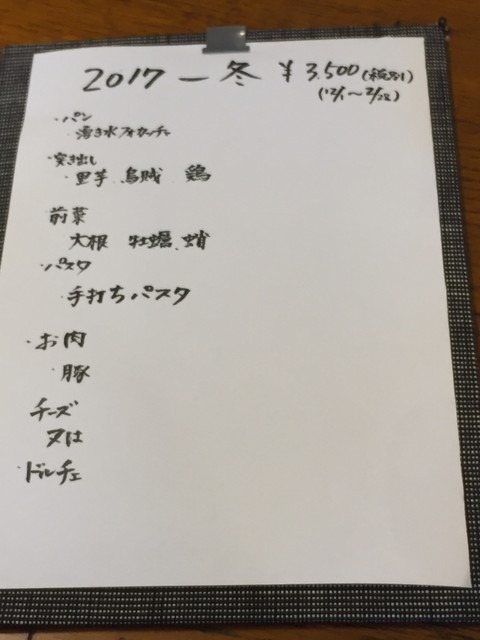 2017 － 冬 ¥3,500(税別)
(12/1～2/28)
・パン
湧き水フォカッチャ
・突き出し
・里芋、烏賊 鶏
前菜
大根 牡蠣、蛸
・パスタ
・手打ちパスタ
・お肉
・豚
チーズ
又は
・ドルチェ